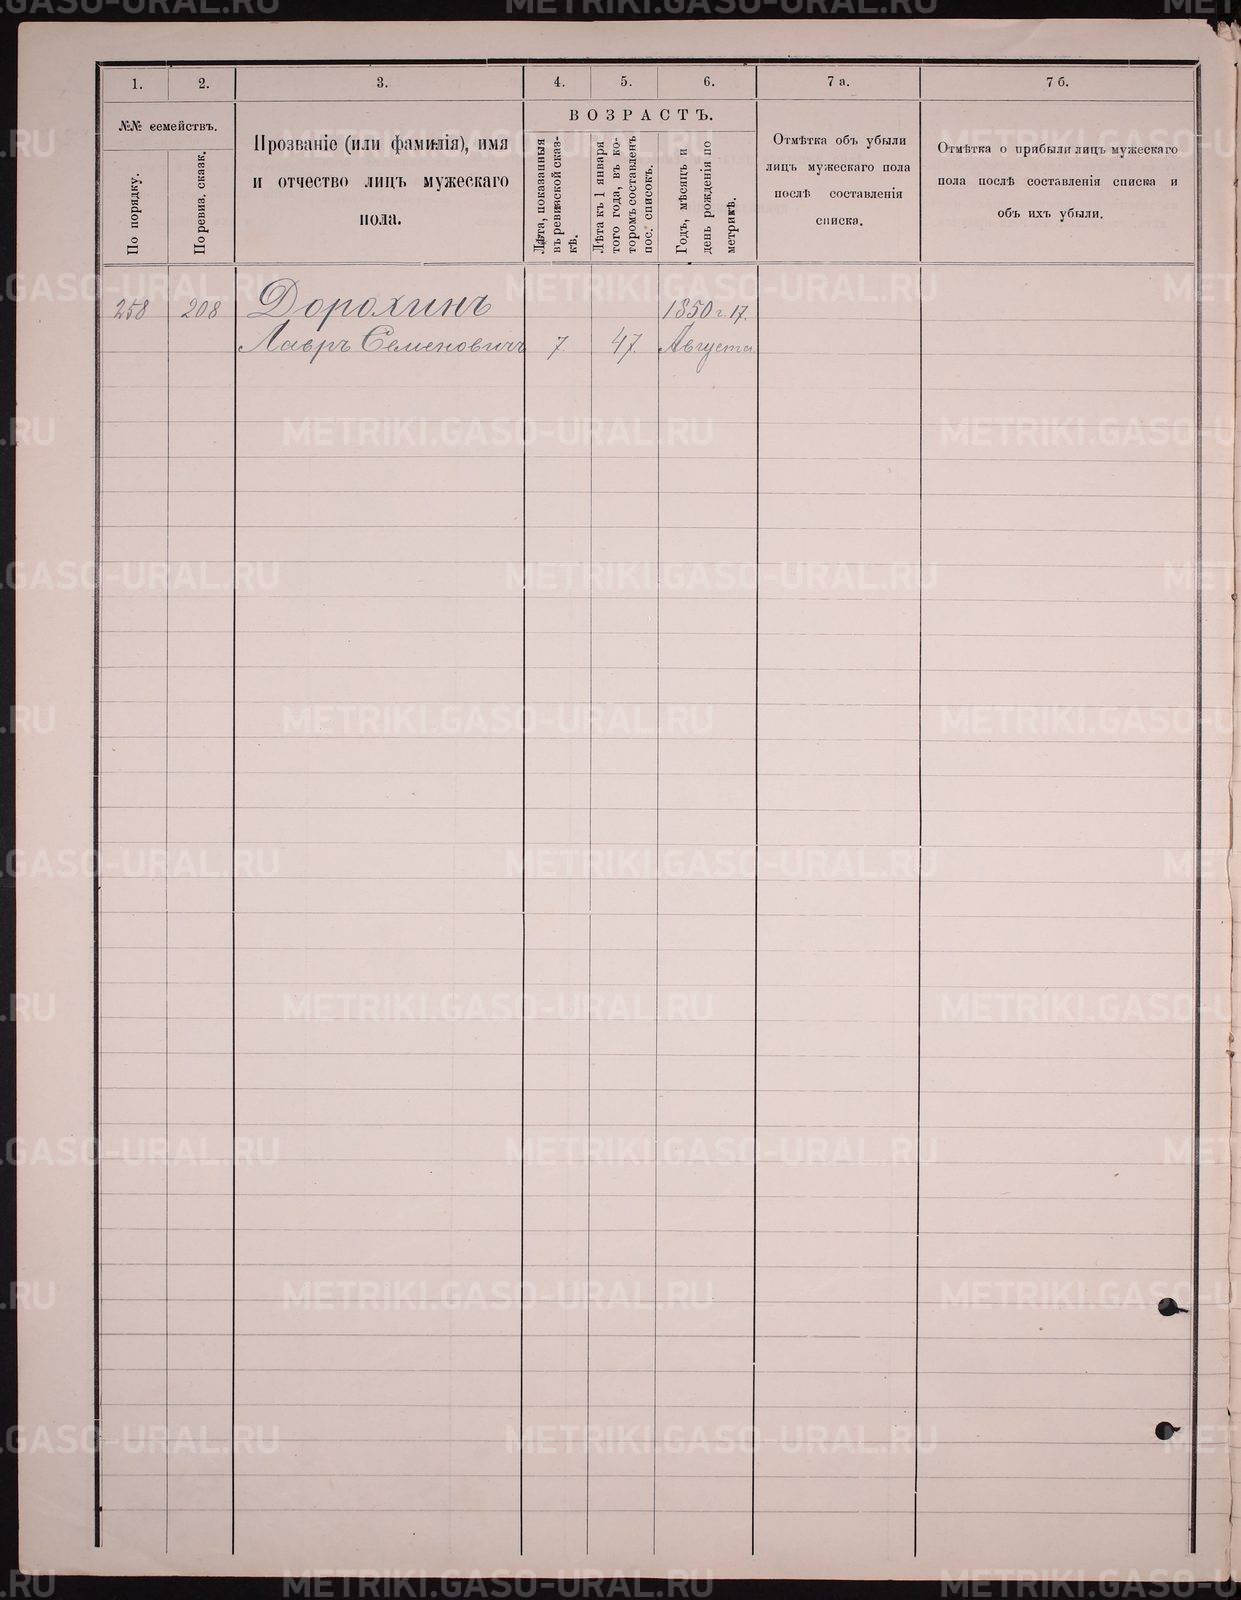 1. 2. 3. 4. 5. 6. 7 а. 7 б.
№№ семействъ.
По порядку.
По ревиз. сказк.
Прозваніе (или фамилія), имя
и отчество лицъ мужескаго
пола.
ВОЗРАСТЪ.
Лѣта, показанныя
въ ревизской сказ-
кѣ.
Лѣта къ 1 января
того года, въ ко-
торомъ составленъ
пос. списокъ.
Годъ, мѣсяцъ и
день рожденія по
метрикѣ.
Отмѣтка объ убыли
лицъ мужескаго пола
послѣ составленія
списка.
Отмѣтка о прибыли лицъ мужескаго
пола послѣ составленія списка и
объ ихъ убыли.
258 208 Дорохинъ 1850 г. 17.
Лавръ Семеновичъ 7 47. Августа
METRIKI.GASO-URAL.RU